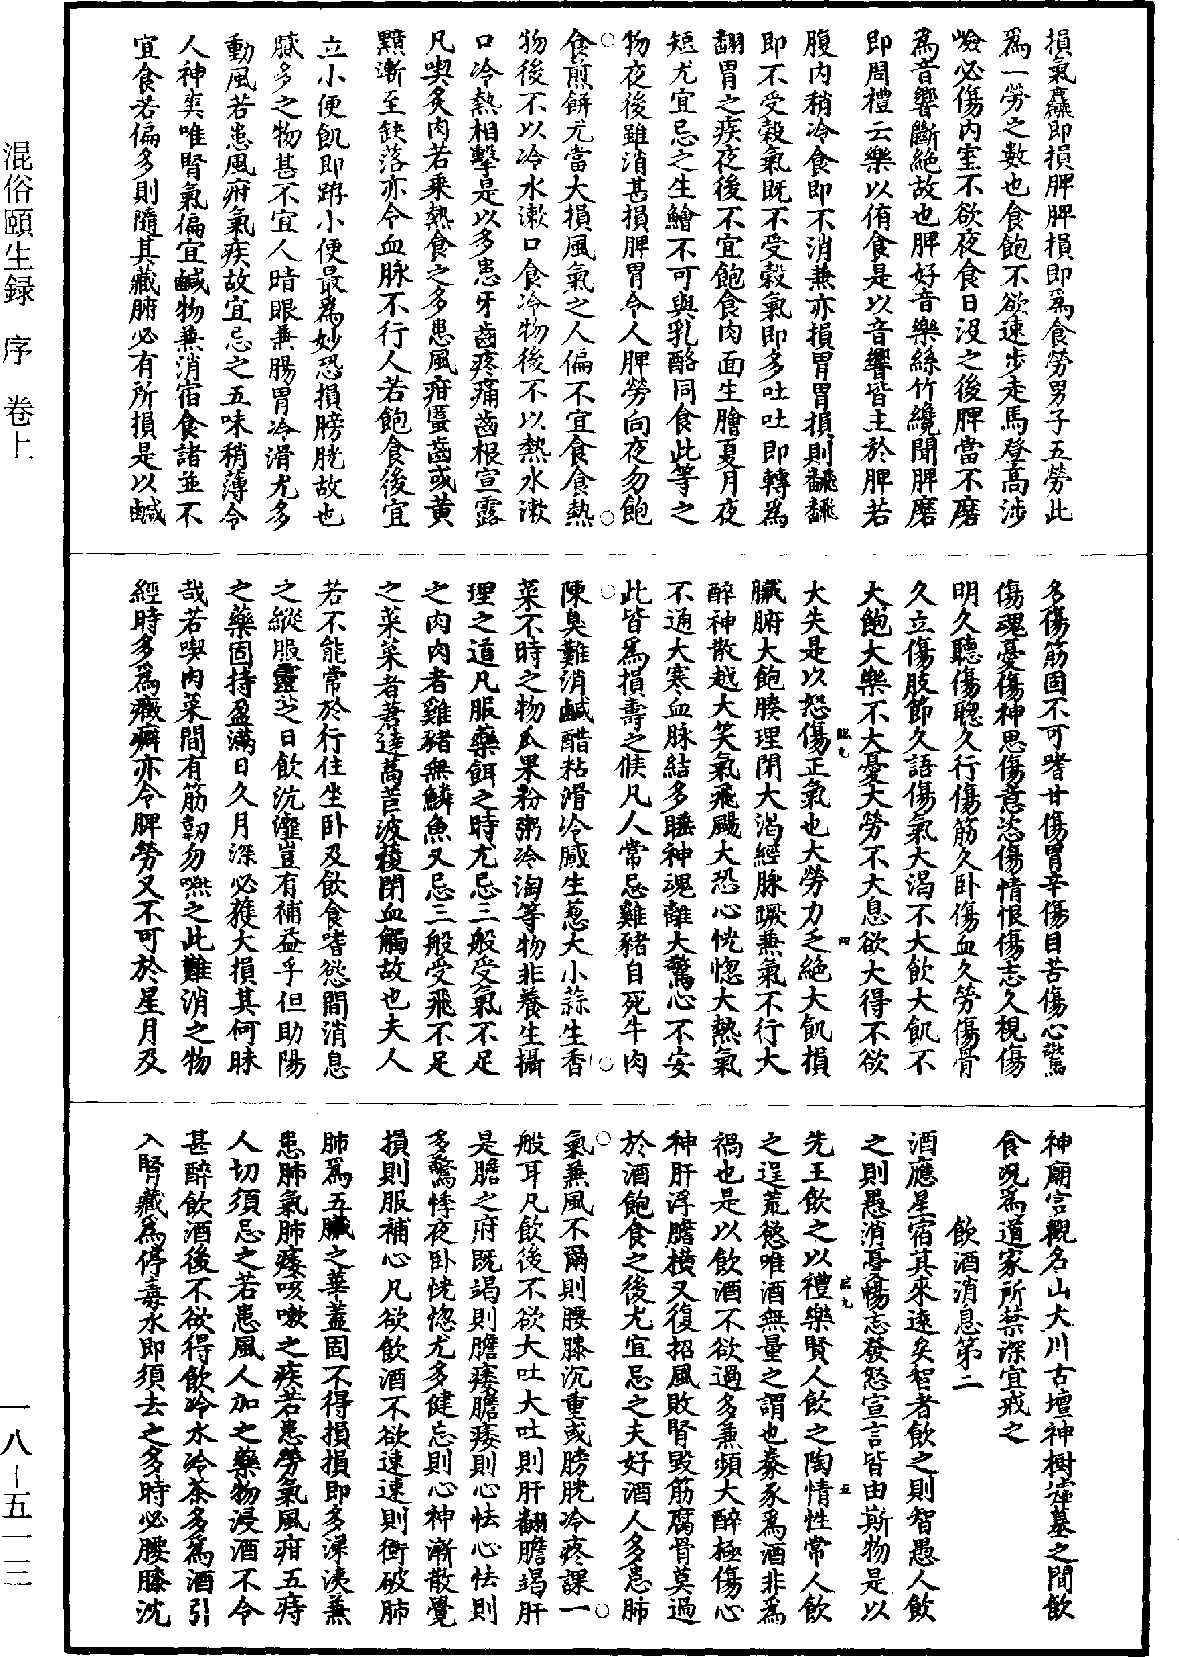 損氣麤即損脾脾損即爲食勞男子五勞此
爲一勞之數也食飽不欲速步走馬登高涉
嶮必傷內室不欲夜食日沒之後脾當不磨
爲音響斷絕故也脾好音樂絲竹纔聞脾磨
即周禮云樂以侑食是以音響皆主於脾若
腹內稍冷食即不消兼亦損胃胃損則飜飜
即不受穀氣既不受穀氣即多吐吐即轉爲
翻胃之疾夜後不宜飽食肉面生膾夏月夜
短尤宜忌之生鱠不可與乳酪同食此等之
物夜後雖消甚損脾胃令人脾勞向夜勿飽
食煎餅尤當大損風氣之人偏不宜食食熱
物後不以冷水漱口食冷物後不以熱水漱
口冷熱相擊是以多患牙齒疼痛齒根宣露
凡喫炙肉若乘熱食之多患風疳䘌齒或黃
黯漸至缺落亦令血脉不行人若飽食後宜
立小便飢即跱小便最爲妙恐損膀胱故也
膩多之物甚不宜人暗眼兼腸胃冷滑尤多
動風若患風疳氣疾故宜忌之五味稍薄令
人神爽唯腎氣偏宜鹹物兼消宿食諸並不
宜食若偏多則隨其藏腑必有所損是以鹹
多傷筋固不可嗜甘傷胃辛傷目苦傷心驚
傷魂憂傷神思傷意恣傷情恨傷志久視傷
明久聽傷聰久行傷筋久卧傷血久勞傷骨
久立傷肢節久語傷氣大渴不大飲大飢不
大飽大樂不大憂大勞不大息欲大得不欲
大失是以怒傷正氣也大勞力乏絕大飢損
臟腑大飽腠理閉大渴經脉蹶兼氣不行大
醉神散越大笑氣飛颺大恐心恍惚大熱氣
不通大寒血脉結多睡神魂離大驚心不安
此皆爲損壽之候凡人常忌雞豬自死牛肉
陳臭難消鹹醋粘滑冷膩生葱大小蒜生香
菜不時之物瓜果粉粥冷淘等物非養生攝
理之道凡服藥餌之時尤忌三般受氣不足
之肉肉者雞豬無鱗魚又忌三般受飛不足
之菜菜者蓍蓬萵苣波稜閉血觸故也夫人
若不能常於行住坐卧及飲食嗜慾間消息
之縱服靈芝日飲沆瀣豈有補益乎但助陽
之藥固持盈滿日久月深必獲大損其何昧
哉若喫肉菜間有筋韌勿嚥之此難消之物
經時多爲癥癖亦令脾勞又不可於星月及
神廟宮觀名山大川古壇神樹壇墓之間飲
食况爲道家所禁深宜戒之
飲酒消息第二
酒應星宿其來遠矣智者飲之則智愚人飲
之則愚消憂暢志發怒宣言皆由斯物是以
先王飲之以禮樂賢人飲之陶情性常人飲
之逞荒慾唯酒無量之謂也豢豕爲酒非爲
禍也是以飲酒不欲過多兼頻大醉極傷心
神肝浮膽橫又復招風敗腎毀筋腐骨莫過
於酒飽食之後尤宜忌之夫好酒人多患肺
氣兼風不爾則腰膝沉重或膀胱冷疼課一
般耳凡飲後不欲大吐大吐則肝翻膽竭肝
是膽之府既竭則膽痿膽痿則心怯心怯則
多驚悸夜卧恍惚尤多健忘則心神漸散覺
損則服補心凡欲飲酒不欲速速則衝破肺
肺爲五臟之華蓋固不得損損即多涕洟兼
患肺氣肺痿咳嗽之疾若患勞氣風疳五痔
人切須忌之若患風人加之藥物浸酒不令
甚醉飲酒後不欲得飲冷水冷茶多爲酒引
入腎藏爲停毒水即須去之多時必腰膝沈
混俗頤生録 序 卷上
一八－五一三